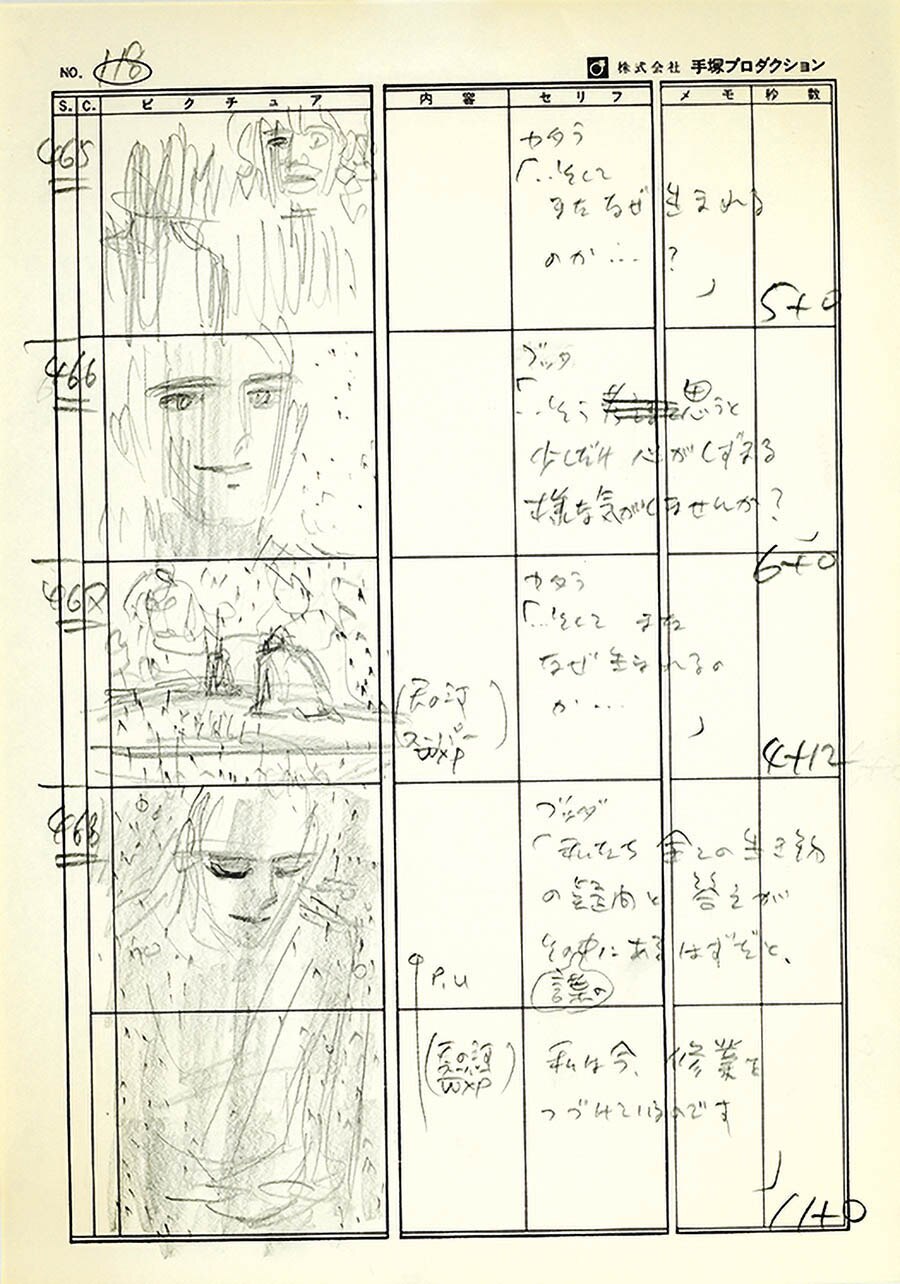 NO. 118
株式会社 手塚プロダクション
S. C. ピクチュア 内容 セリフ メモ 秒数
465
カタう
「…そして
またなぜ生まれる
のか…?
」
5+0
466
ブッダ
「…そう 思うと
少しだけ 心がしずまる
様な気がしませんか?
6+0
467
カタう
「…そして また
なぜ生まれるの
か…
」
(天の河
スーパー
WXP)
4+12
468
ブッダ
「私たち 全ての生き物
の疑問と 答えが
その中にあるはずだと、
言葉の
P.U
(天の河
スーパー
WXP)
私は今、修業を
つづけているのです
」
11+0